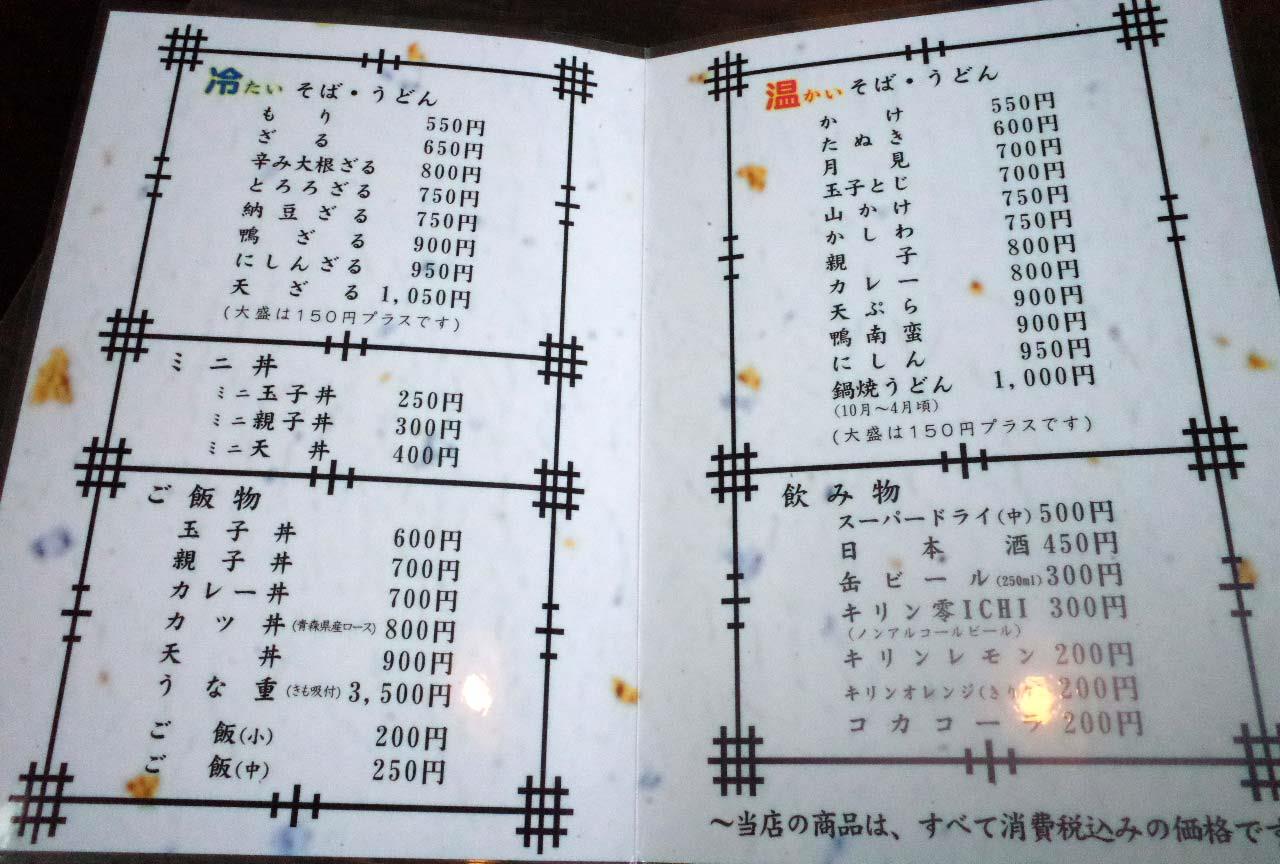 冷たい そば・うどん
もり 550円
ざる 650円
辛み大根ざる 800円
とろろざる 750円
納豆ざる 750円
鴨ざる 900円
にしんざる 950円
天ざる 1,050円
(大盛は150円プラスです)
ミニ丼
ミニ玉子丼 250円
ミニ親子丼 300円
ミニ天丼 400円
ご飯物
玉子丼 600円
親子丼 700円
カレー丼 700円
カツ丼(青森県産ロース) 800円
天丼 900円
うな重(きも吸付) 3,500円
ご飯(小) 200円
ご飯(中) 250円
温かい そば・うどん
かけ 550円
たぬき 600円
月見 700円
玉子とじ 700円
山かけ 750円
かしわ 750円
親子 800円
カレー 800円
天ぷら 900円
鴨南蛮 900円
にしん 950円
鍋焼うどん 1,000円
(10月～4月頃)
(大盛は150円プラスです)
飲み物
スーパードライ(中) 500円
日本酒 450円
缶ビール(250ml) 300円
キリン零ICHI 300円
(ノンアルコールビール)
キリンレモン 200円
キリンオレンジ 200円
コカコーラ 200円
～当店の商品は、すべて消費税込みの価格です